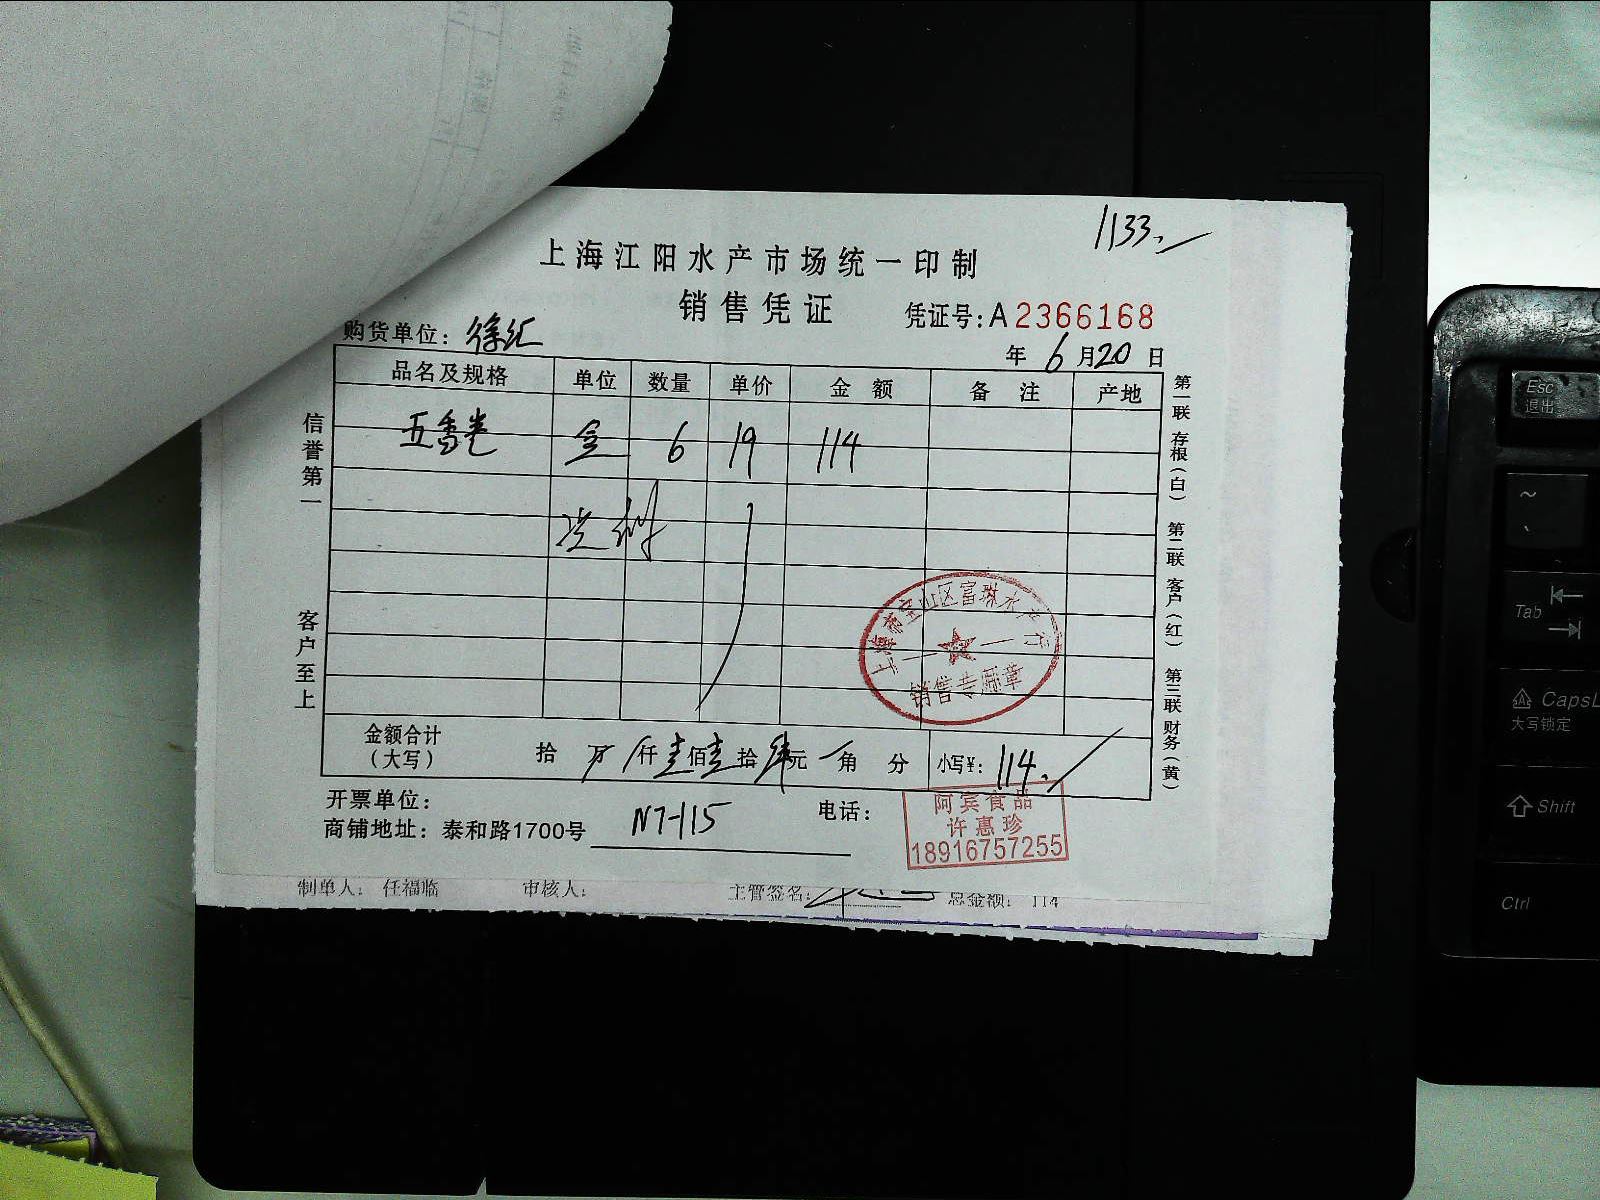 1133.
上海江阳水产市场统一印制
销售凭证
凭证号:A2366168
购货单位: 徐汇
年 6 月 20 日
品名及规格 单位 数量 单价 金额 备注 产地
五香卷 盒 6 19 114
信誉第一
客户至上
上海市宝山区富琳水产行
销售专用章
金额合计
(大写)
拾 万 仟 壹 佰 壹 拾 肆 元 角 分 小写¥: 114.
开票单位:
电话:
商铺地址: 泰和路1700号 N7-115
阿宾食品
许惠珍
18916757255
第一联 存根(白) 第二联 客户(红) 第三联 财务(黄)
制单人: 任福临 审核人: 主管签名: 总金额: 114
Esc
退出
~
Tab
CapsL
大写锁定
Shift
Ctrl